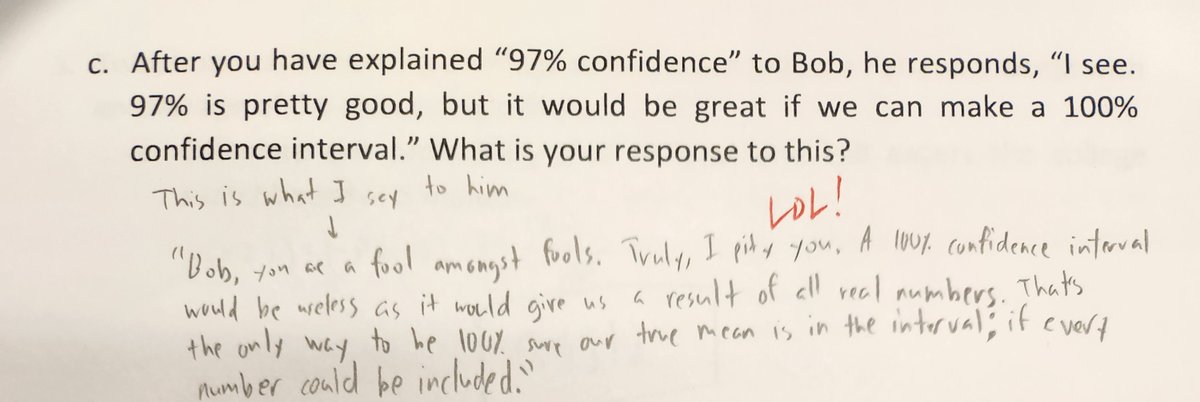 c. After you have explained “97% confidence” to Bob, he responds, “I see.
97% is pretty good, but it would be great if we can make a 100%
confidence interval.” What is your response to this?
This is what I say to him
LOL!
↓
“Bob, you are a fool amongst fools. Truly, I pity you. A 100% confidence interval
would be useless as it would give us a result of all real numbers. Thats
the only way to be 100% sure our true mean is in the interval; if every
number could be included.”